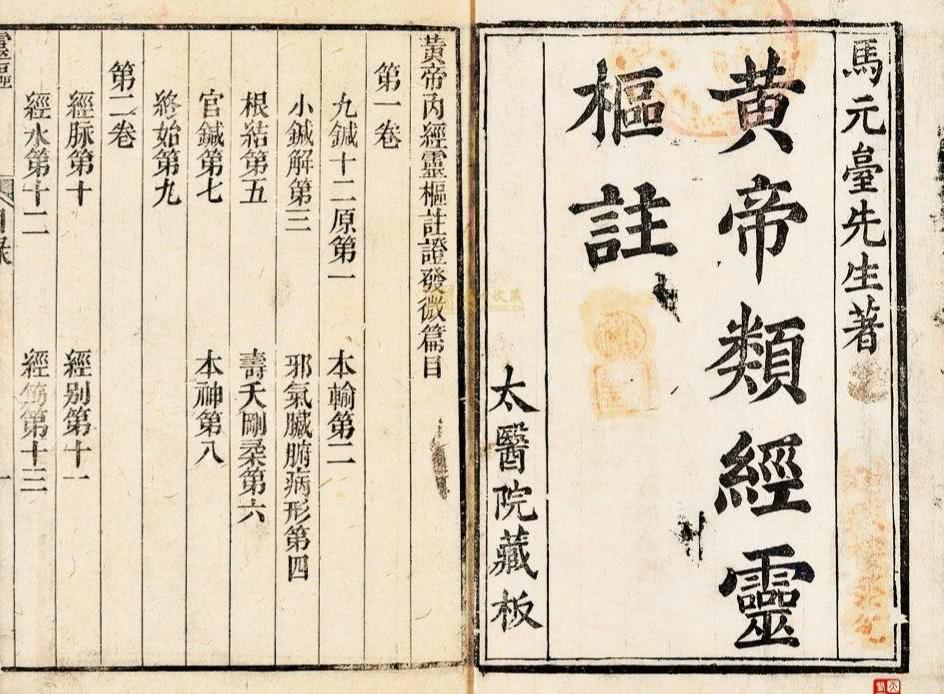 馬元臺先生著
黃帝類經靈
樞註
太醫院藏板
黃帝內經靈樞註證發微篇目
第一卷
九鍼十二原第一
本輸第二
小鍼解第三
邪氣臟腑病形第四
根結第五
壽夭剛柔第六
官鍼第七
本神第八
終始第九
第二卷
經脉第十
經别第十一
經水第十二
經筋第十三
靈樞
目錄
一